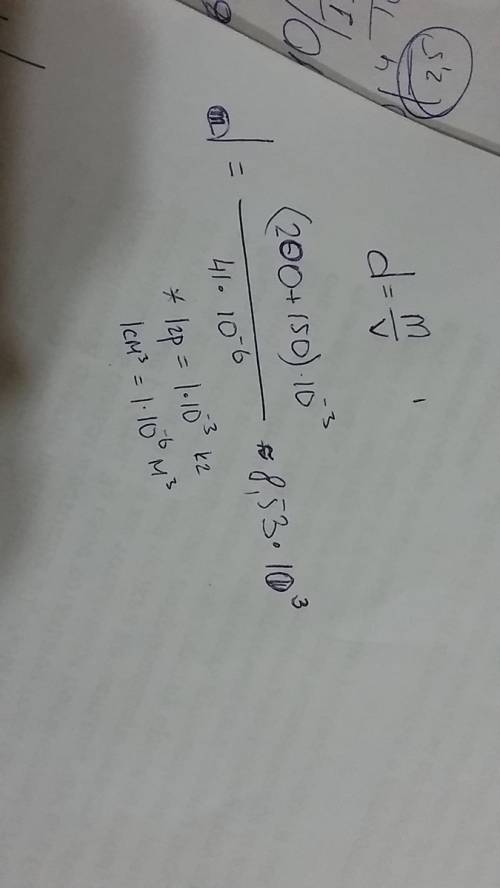 d = m/v
d = (200+150)·10⁻³ / 41·10⁻⁶ ≈ 8,53·10³
* 1гр = 1·10⁻³ кг
1см³ = 1·10⁻⁶ м³